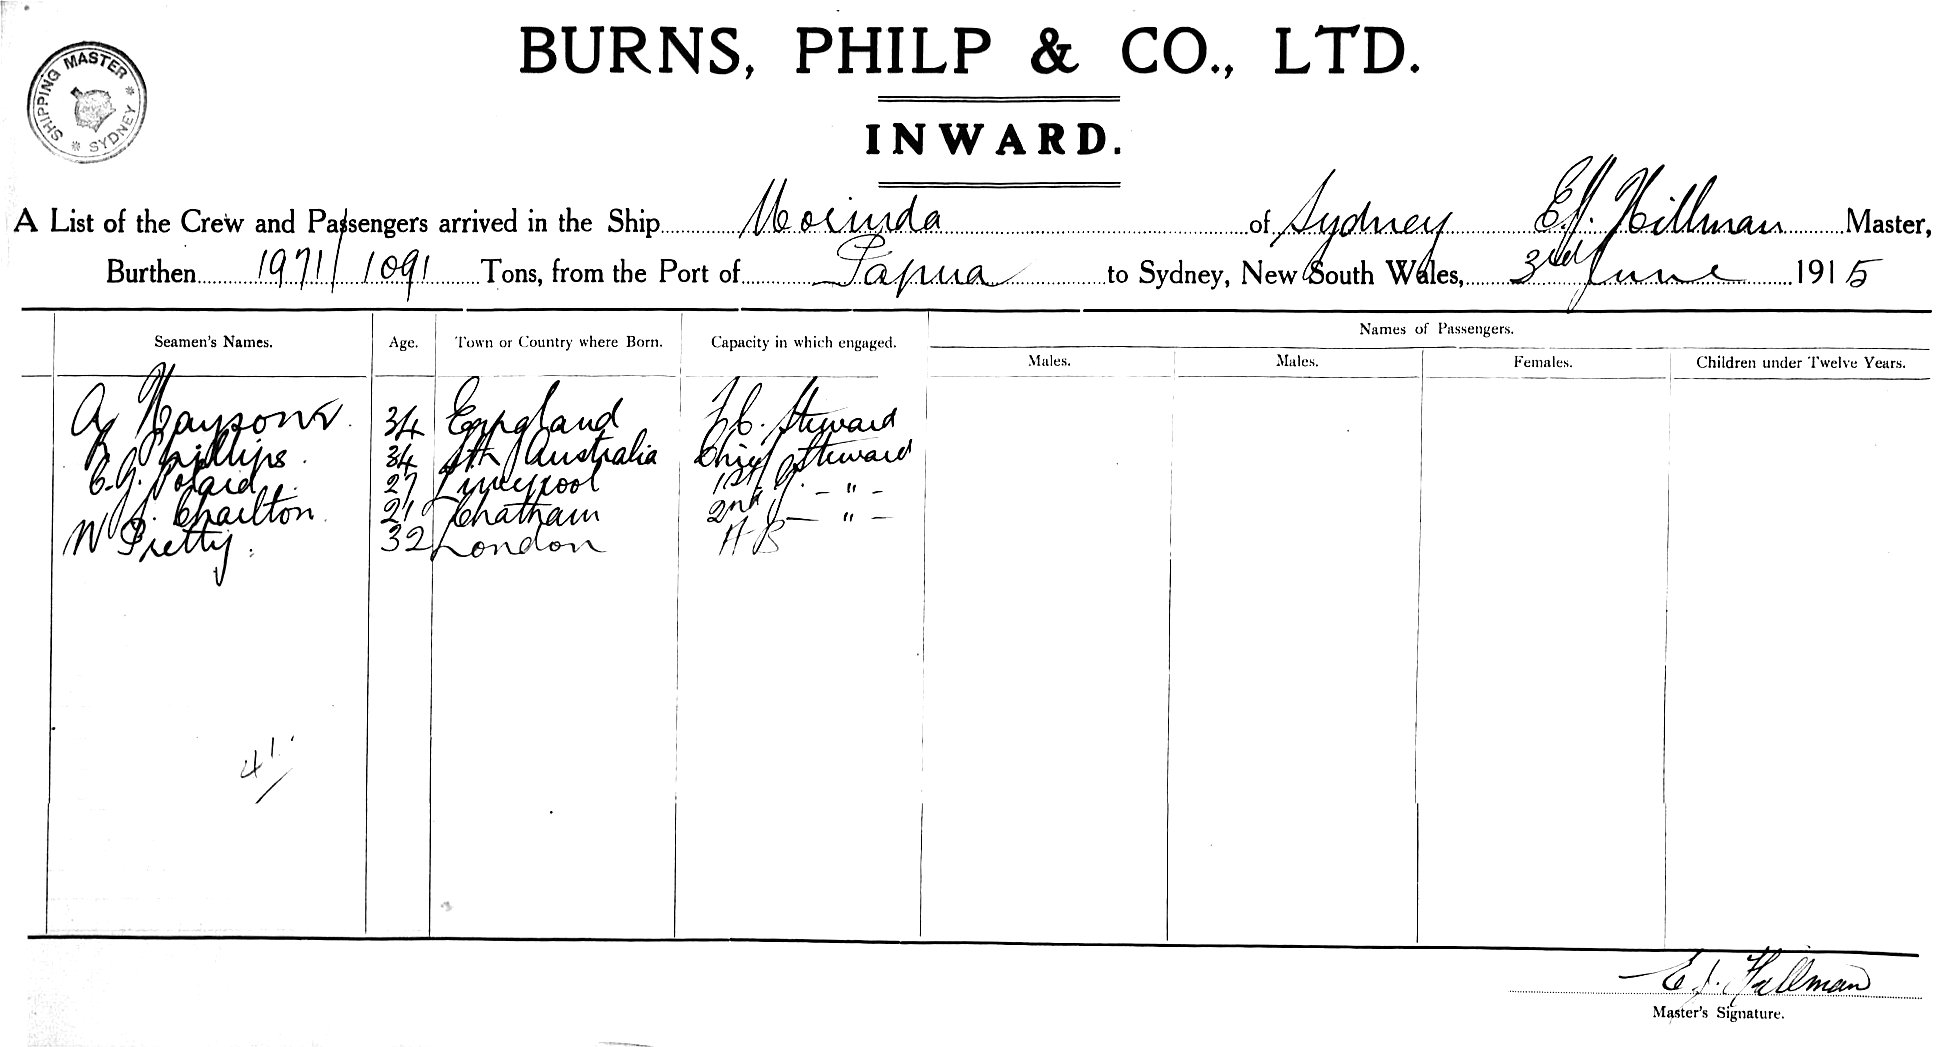 BURNS, PHILP & CO., LTD.
SHIPPING MASTER SYDNEY
INWARD.
A List of the Crew and Passengers arrived in the Ship Morinda of Sydney E.J. Hillman Master,
Burthen 1971/1091 Tons, from the Port of Papua to Sydney, New South Wales, 3rd June 1915
Names of Passengers.
Seamen's Names. Age. Town or Country where Born. Capacity in which engaged. Males. Males. Females. Children under Twelve Years.
A 34 England Steward
Phillips 34 Sth Australia Chief Steward
C.G. 27 Liverpool 1st - " -
Charlton 21 Chatham 2nd - " -
W Pretty 32 London AB
41
E.J. Hillman
Master's Signature.